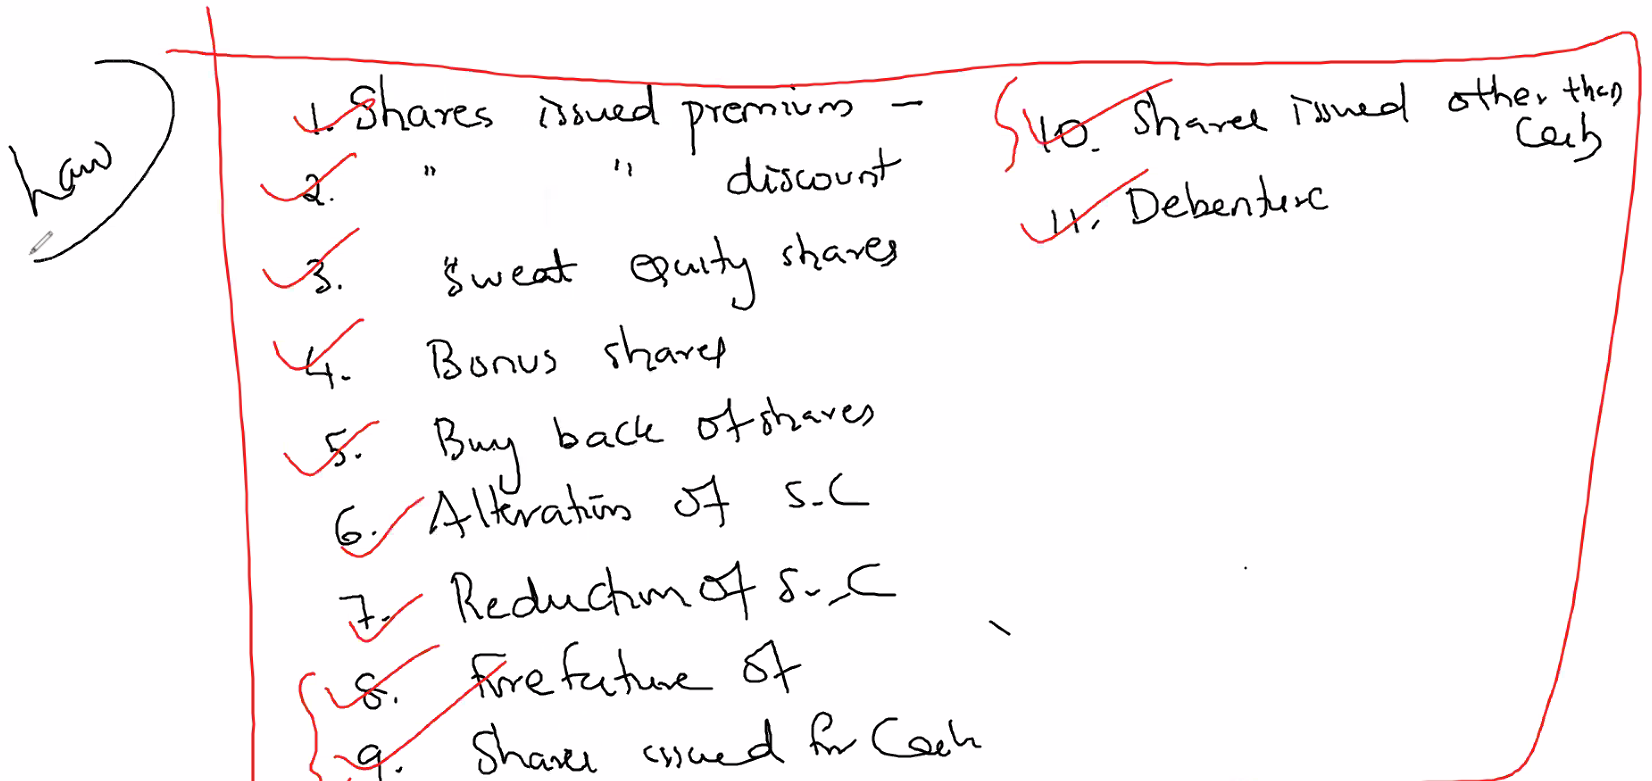 Law
1. Shares issued premium –
2. " " discount
3. Sweat equity shares
4. Bonus shares
5. Buy back of shares
6. Alteration of S.C
7. Reduction of S.C
8. Forefature of
9. Shares issued for Cash
10. Shares issued other than
Cash
11. Debenture